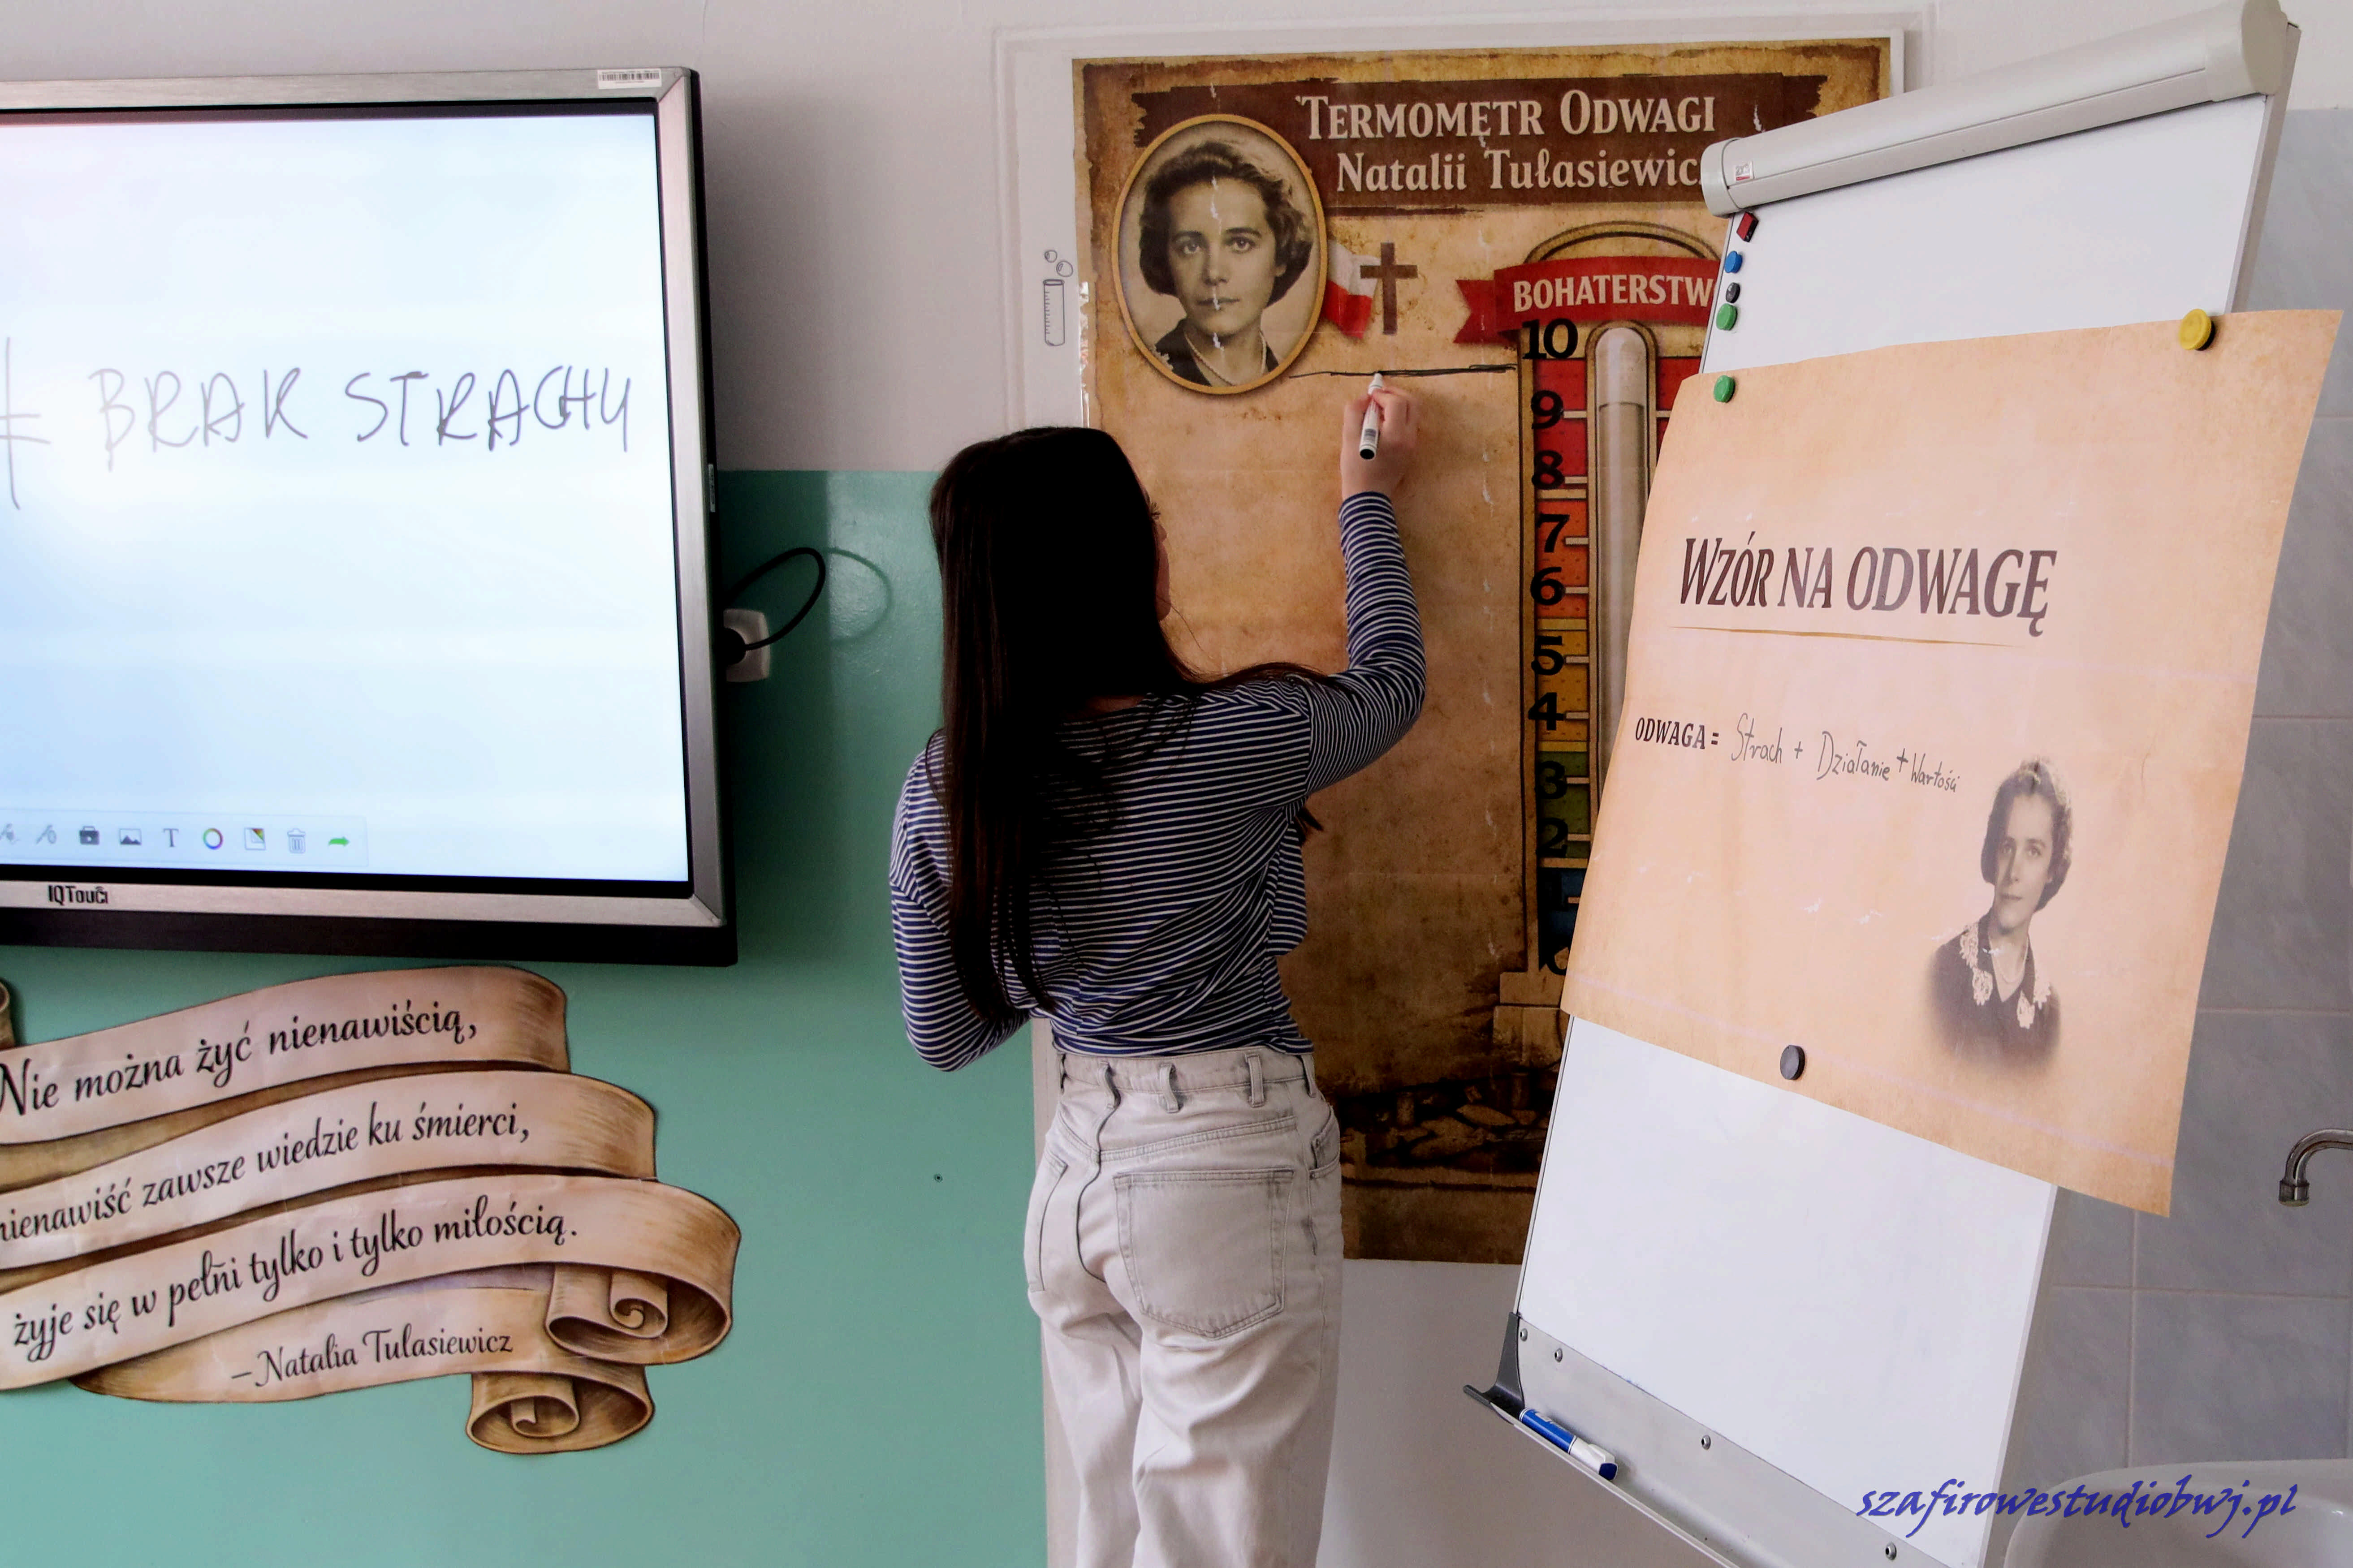 ≠ BRAK STRACHU
IQTouch
Nie można żyć nienawiścią,
nienawiść zawsze wiedzie ku śmierci,
żyje się w pełni tylko i tylko miłością.
–Natalia Tułasiewicz
TERMOMETR ODWAGI
Natalii Tułasiewic
BOHATERSTW
10
9
8
7
6
5
4
3
2
1
WZÓR NA ODWAGĘ
ODWAGA = Strach + Działanie + Wartości
szafirowestudiobwj.pl